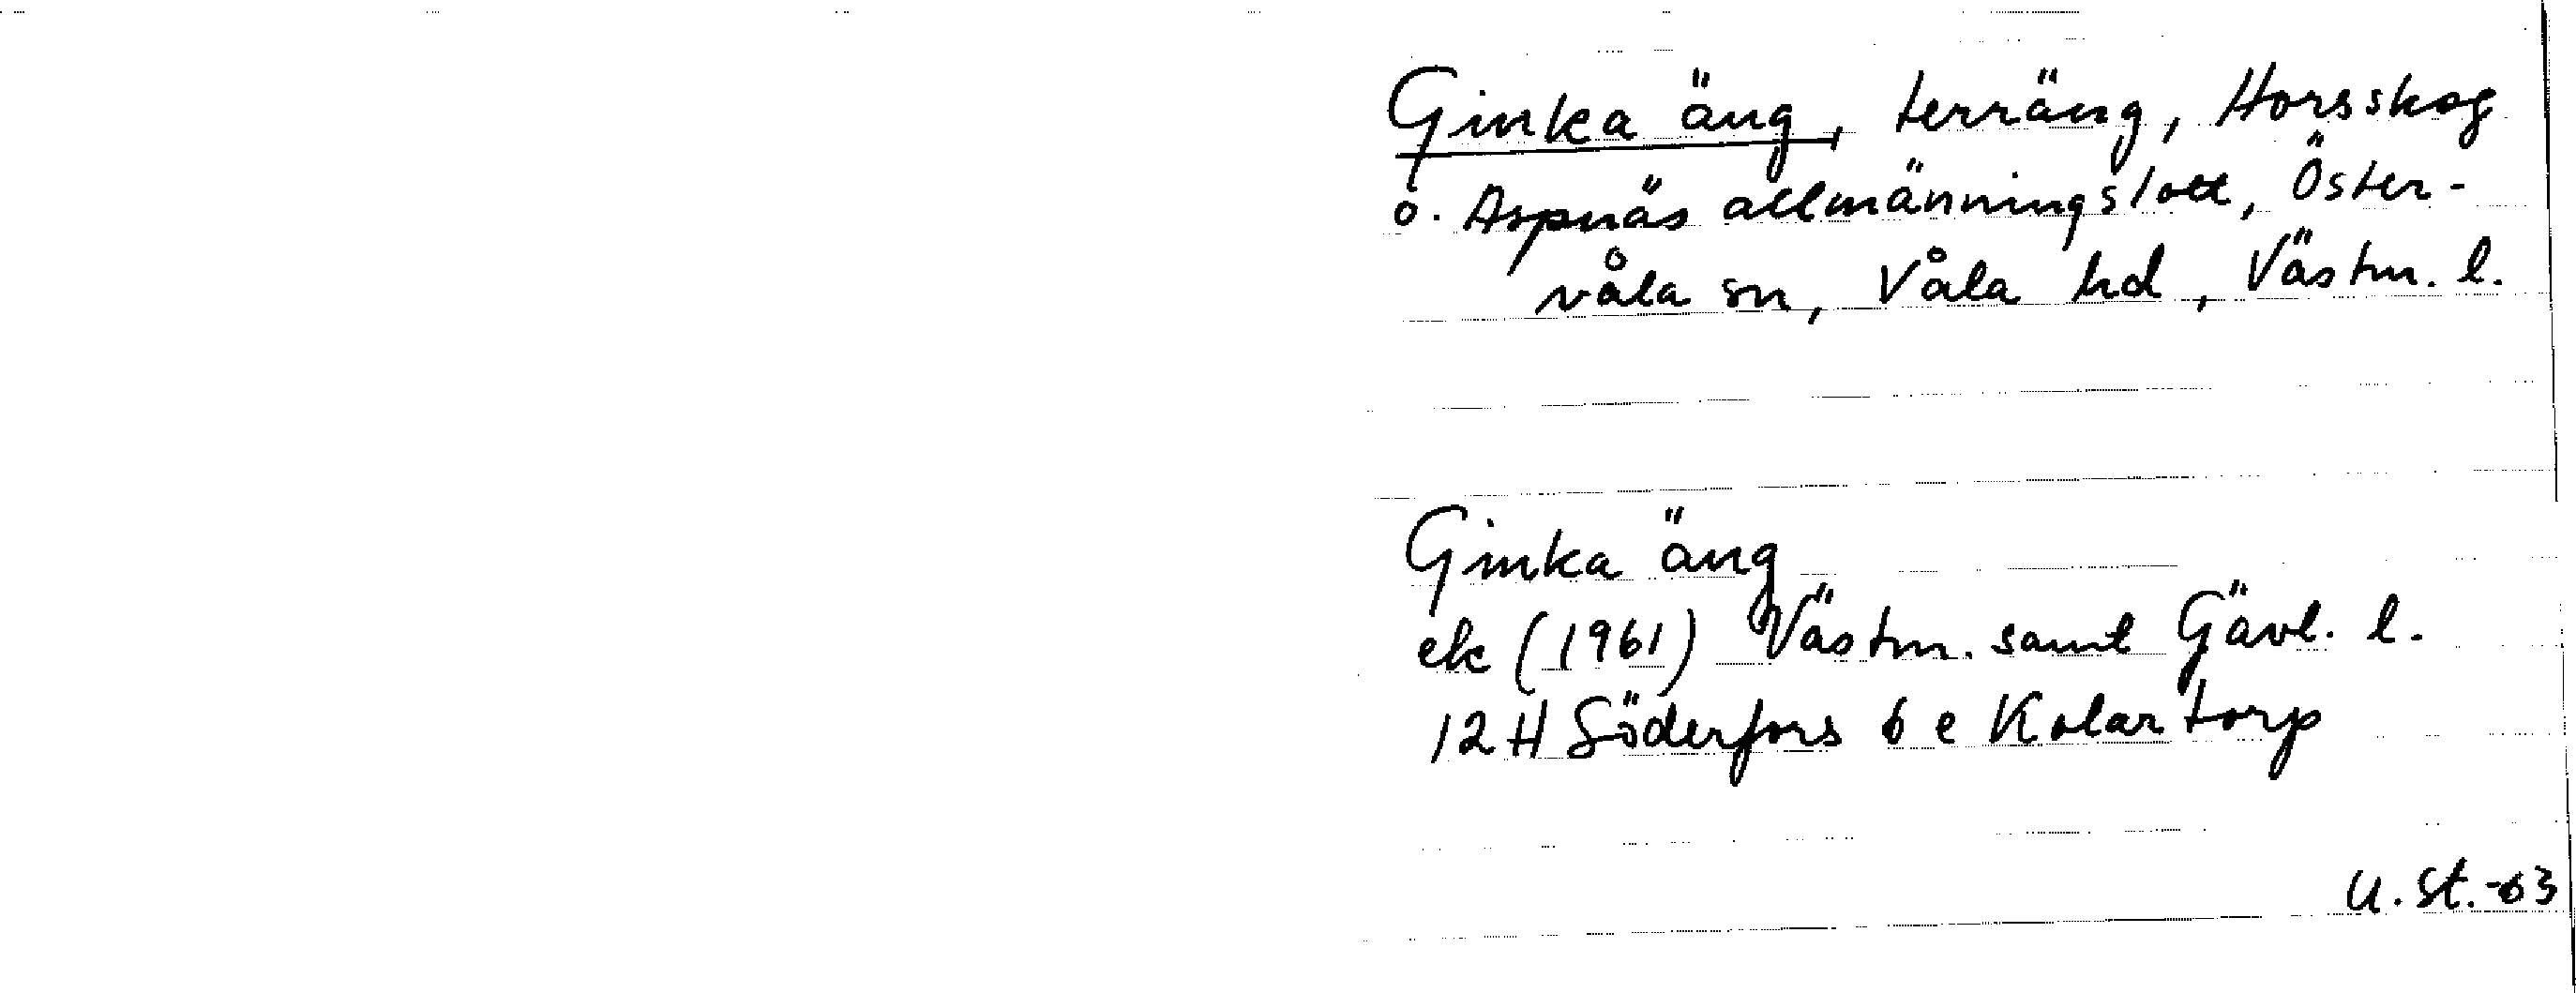 Ginka äng, terräng, Horsskog
o. Aspnäs allmänningslott, Öster-
våla sn, Våla hd, Västm. l.
Ginka äng
ek (1961) Västm. samt Gävl. l.
12 H Söderfors 6 e Kolartorp
U. St. -63